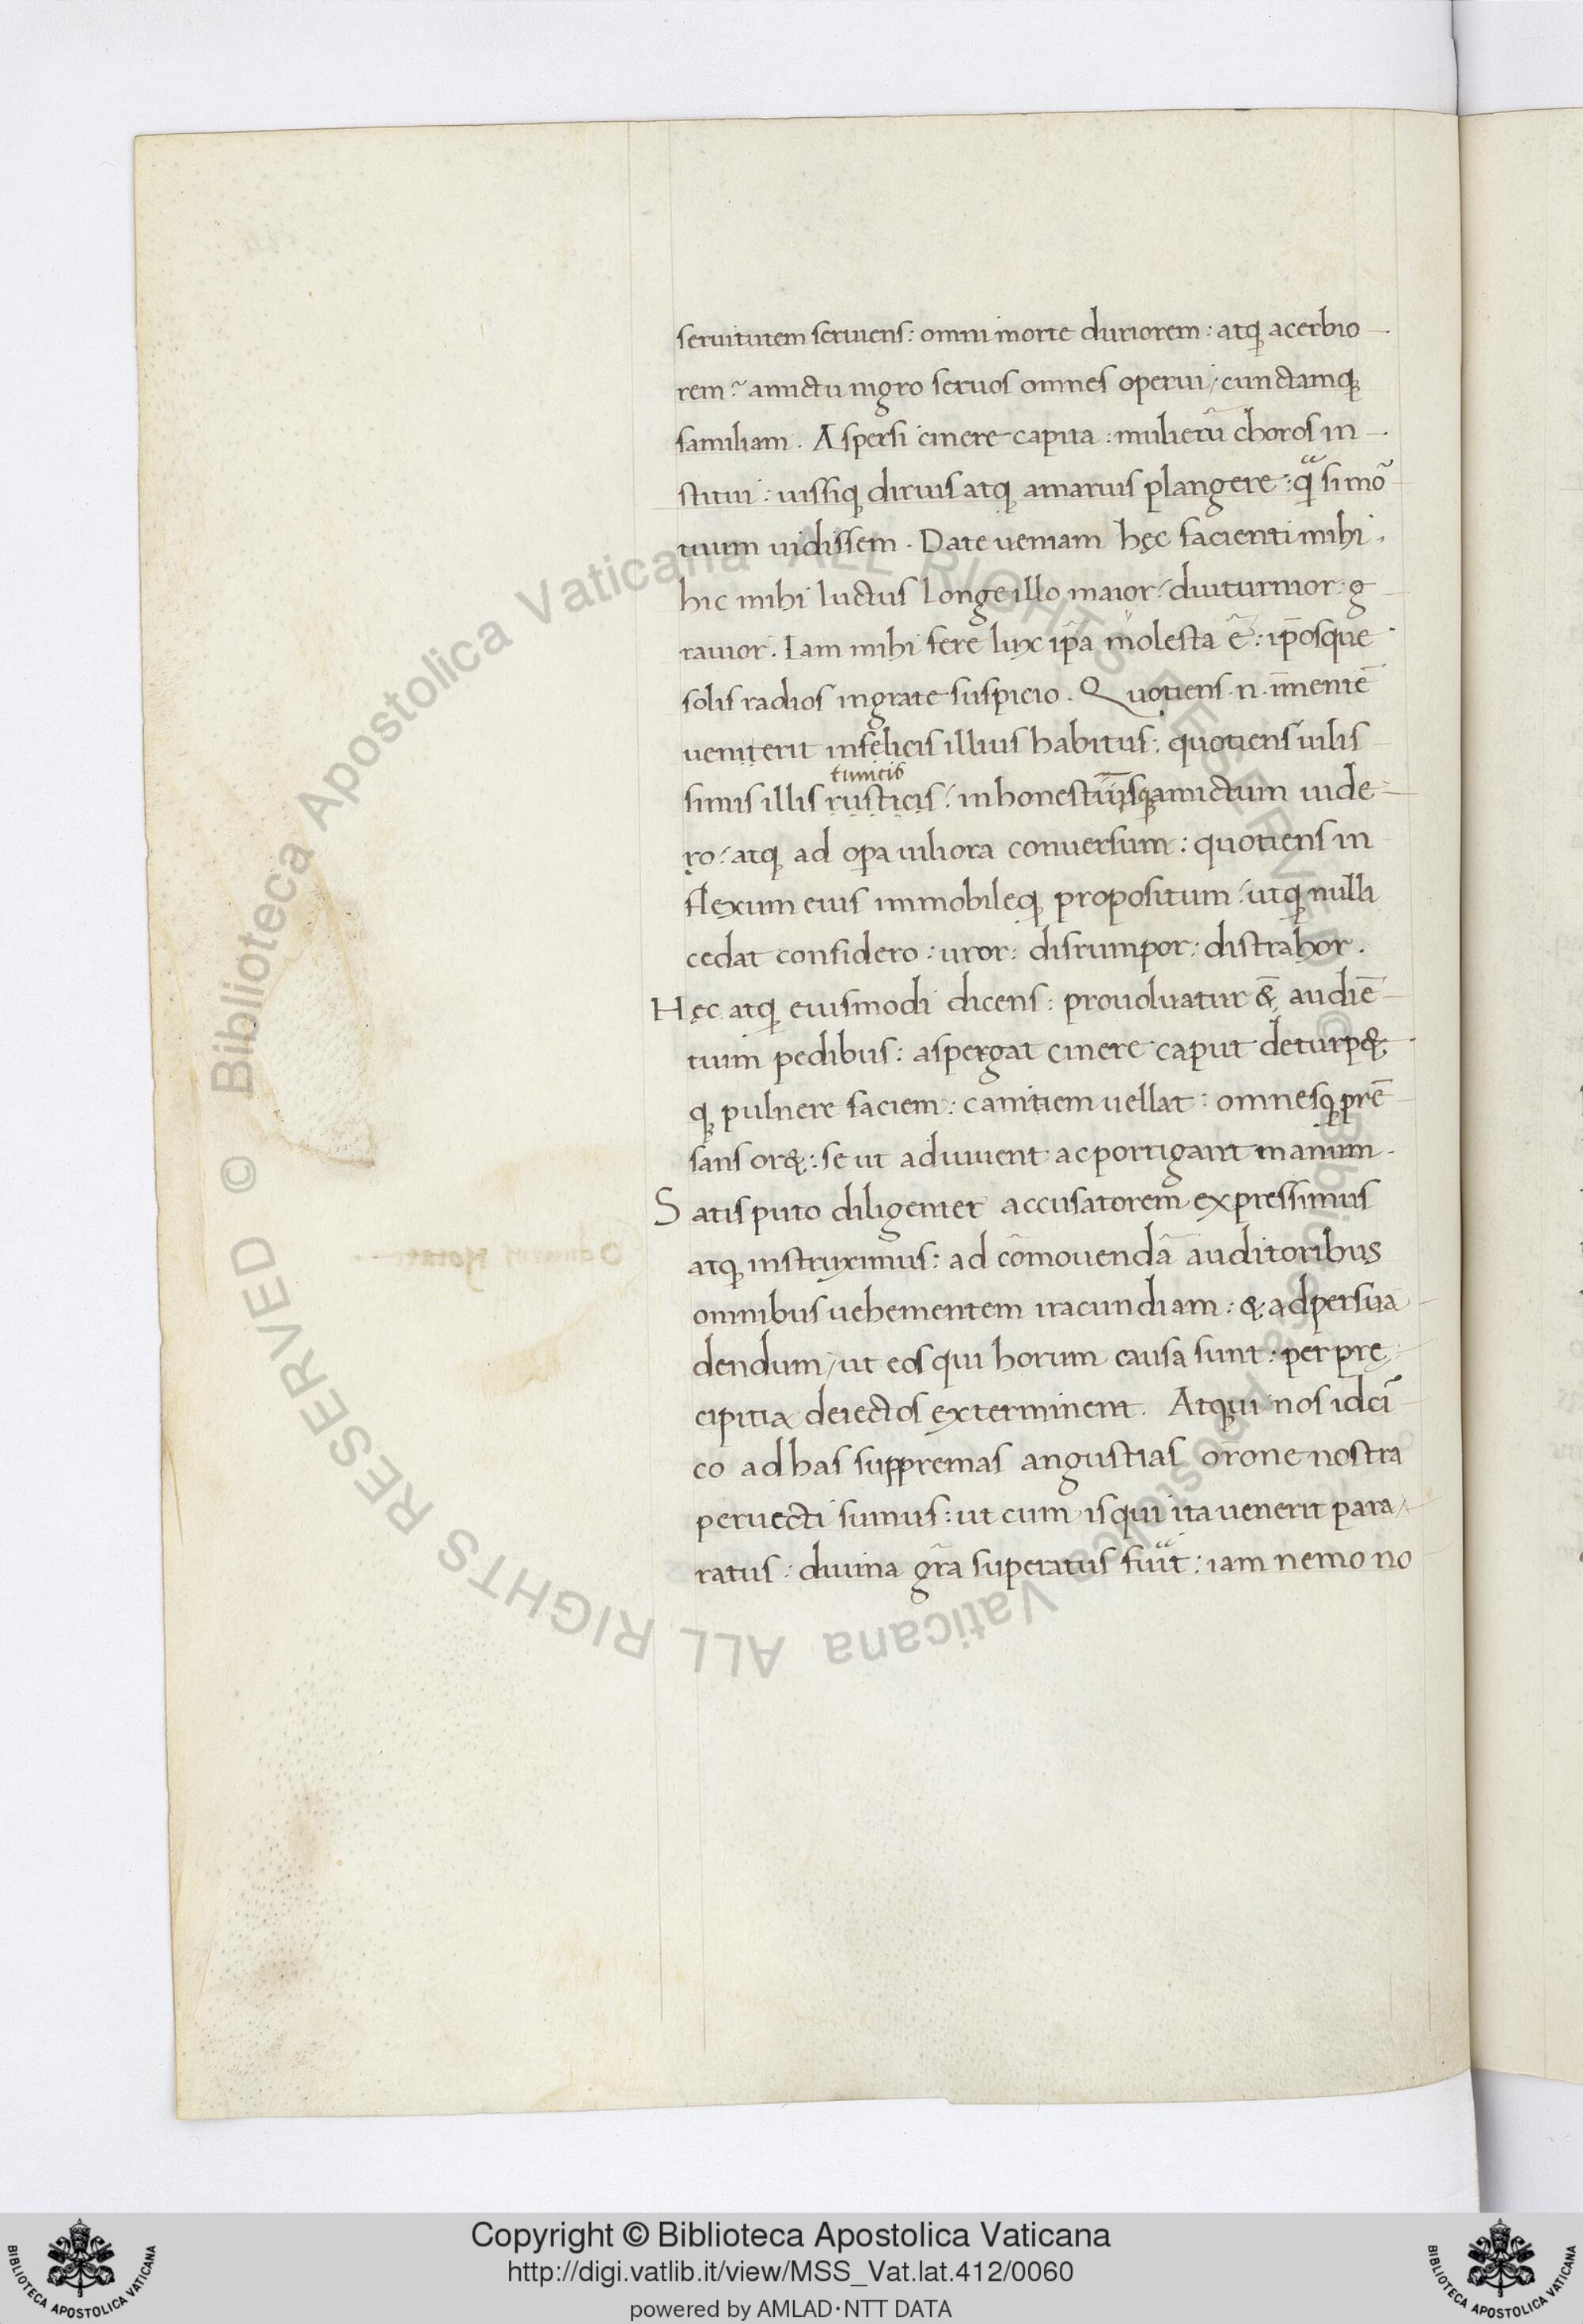 seruitutem seruiens: omni morte duriorem: atq; acerbio
rem? amictu nigro seruos omnes operui / cunctamq;
familiam. Aspersi cinere capita: mulierū choros in
stitui: iussiq; diruis atq; amaruis plangere: qᵃsi mō
tuum uidissem. Date ueniam hęc facienti mihi.
hic mihi luctus longe illo maior / diuturnior: g
rauior. Iam mihi fere lux ip̄a molesta ē: ip̄osque
solis radios ingrate suspicio. Quotiens .n. īmentē
uenirerit infelicis illius habitus: quotiens uilis
tunicis
simis illis rusticis / inhonestūisq; amictum uide
ro / atq; ad opa uiliora conuersum: quotiens in
flexum eius immobileq; propositum / utq; nulli
cedat considero: uror: disrumpor: distrahor.
Hęc atq; eiusmodi dicens: prouoluatur &̄ audiē
tuim pedibus: aspergat cinere caput deturp&
q; puluere faciem: canitiem uellat: omnesq; prē
sans or&: se ut adiuuent ac porrigant manum.
Satis puto diligenter accusatorem expressimus
atq; instruximus: ad cōmouendā auditoribus
omnibus uehementem iracundiam: & ad persua
dendum / ut eos qui horum causa sunt: per prę
cipitia deiectos exterminent. Atqui nos idcī
co ad has suppremas angustias or̄one nostra
peruecti sumus: ut cum is qui ita uenerit para
ratus: diuina gr̄a superatus fuīt: iam nemo no
Copyright © Biblioteca Apostolica Vaticana
http://digi.vatlib.it/view/MSS_Vat.lat.412/0060
powered by AMLAD·NTT DATA
BIBLIOTECA APOSTOLICA VATICANA
BIBLIOTECA APOSTOLICA VATICANA
© Biblioteca Apostolica Vaticana ALL RIGHTS RESERVED
© Biblioteca Apostolica Vaticana ALL RIGHTS RESERVED